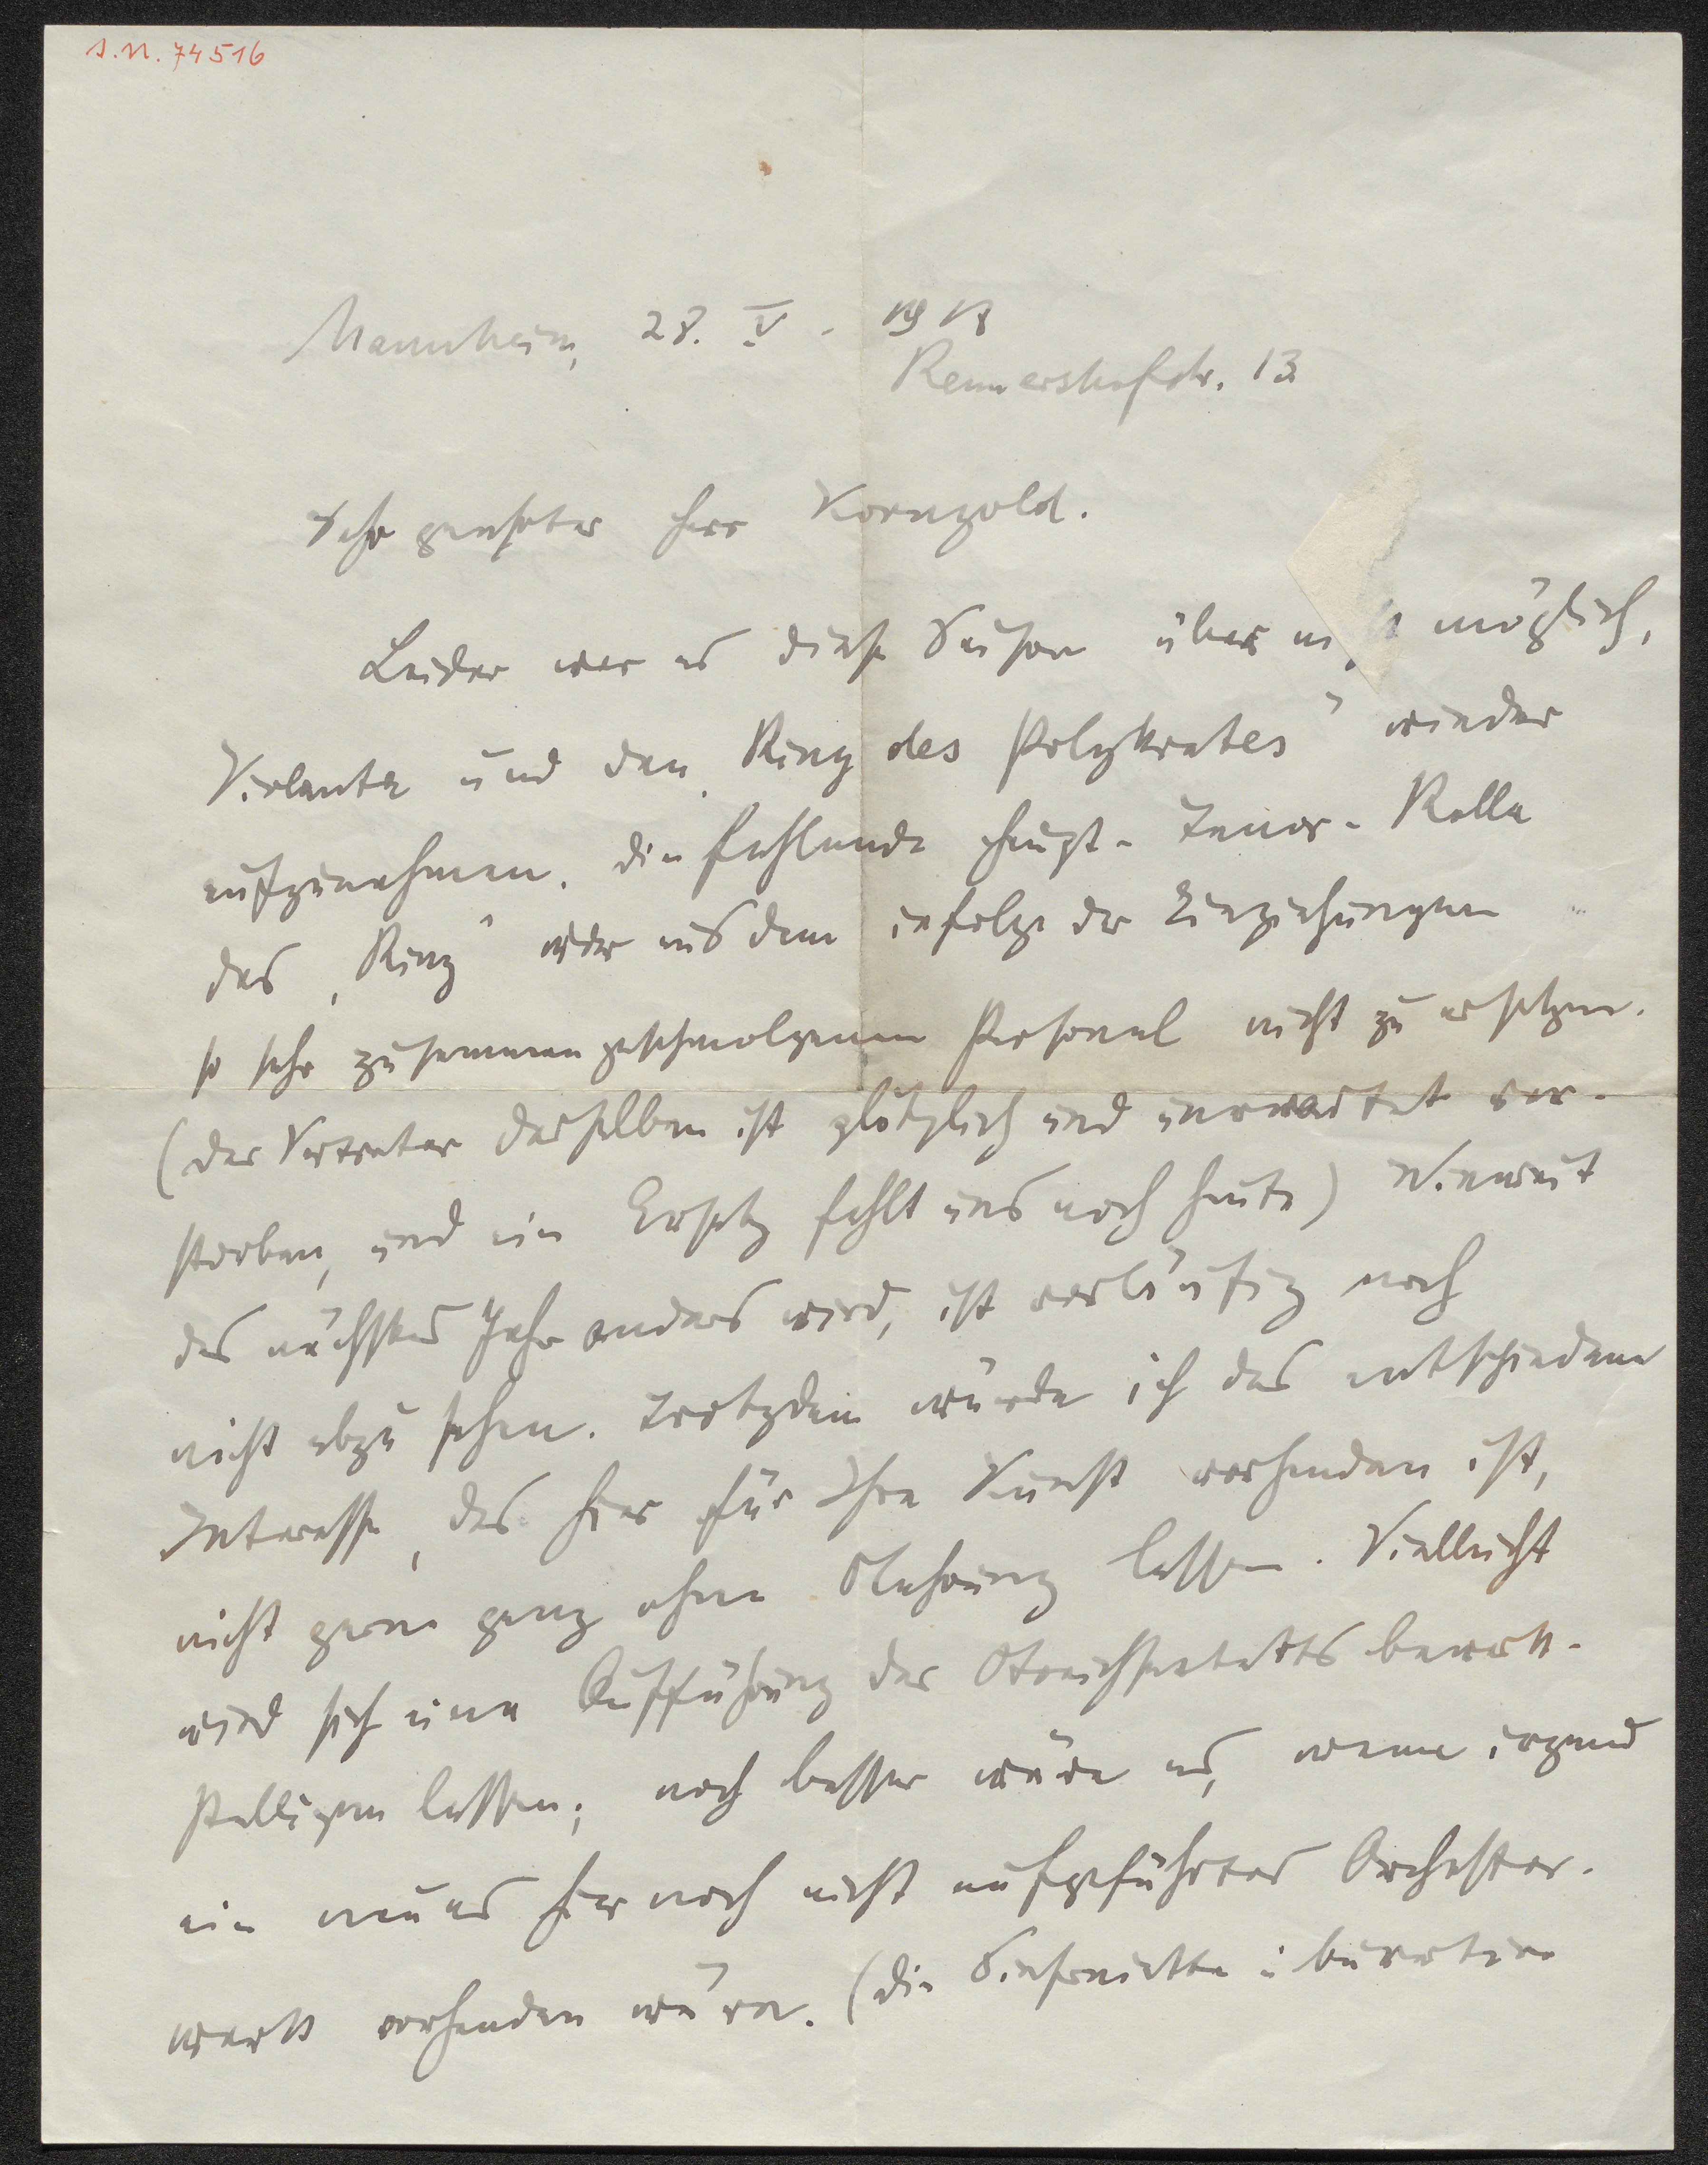 s.n. 74516
Mannheim, 28. V. 1918
Rennershofstr. 13
Sehr geehrter Herr Korngold.
Leider war es diese Saison über nicht möglich,
Violanta und den „Ring des Polykrates" wieder
aufzunehmen. Die fehlende Haupt-Tenor-Rolle
des „Ring" war aus dem infolge der Einziehungen
so sehr zusammengeschmolzenen Personal nicht zu ersetzen.
(der Vertreter derselben ist plötzlich und unerwartet ver-
storben, und ein Ersatz fehlt uns noch heute) Wieweit
das nächstes Jahr anders wird, ist vorläufig noch
nicht abzusehen. Trotzdem würde ich das entschiedene
Interesse, das hier für Ihre Kunst vorhanden ist,
nicht gern ganz ohne Nahrung lassen. Vielleicht
wird sich eine Aufführung des Streichsextetts bewerk-
stelligen lassen; noch besser wäre es, wenn irgend
ein neues hier noch nicht aufgeführtes Orchester-
werk vorhanden wäre. (die Sinfonietta